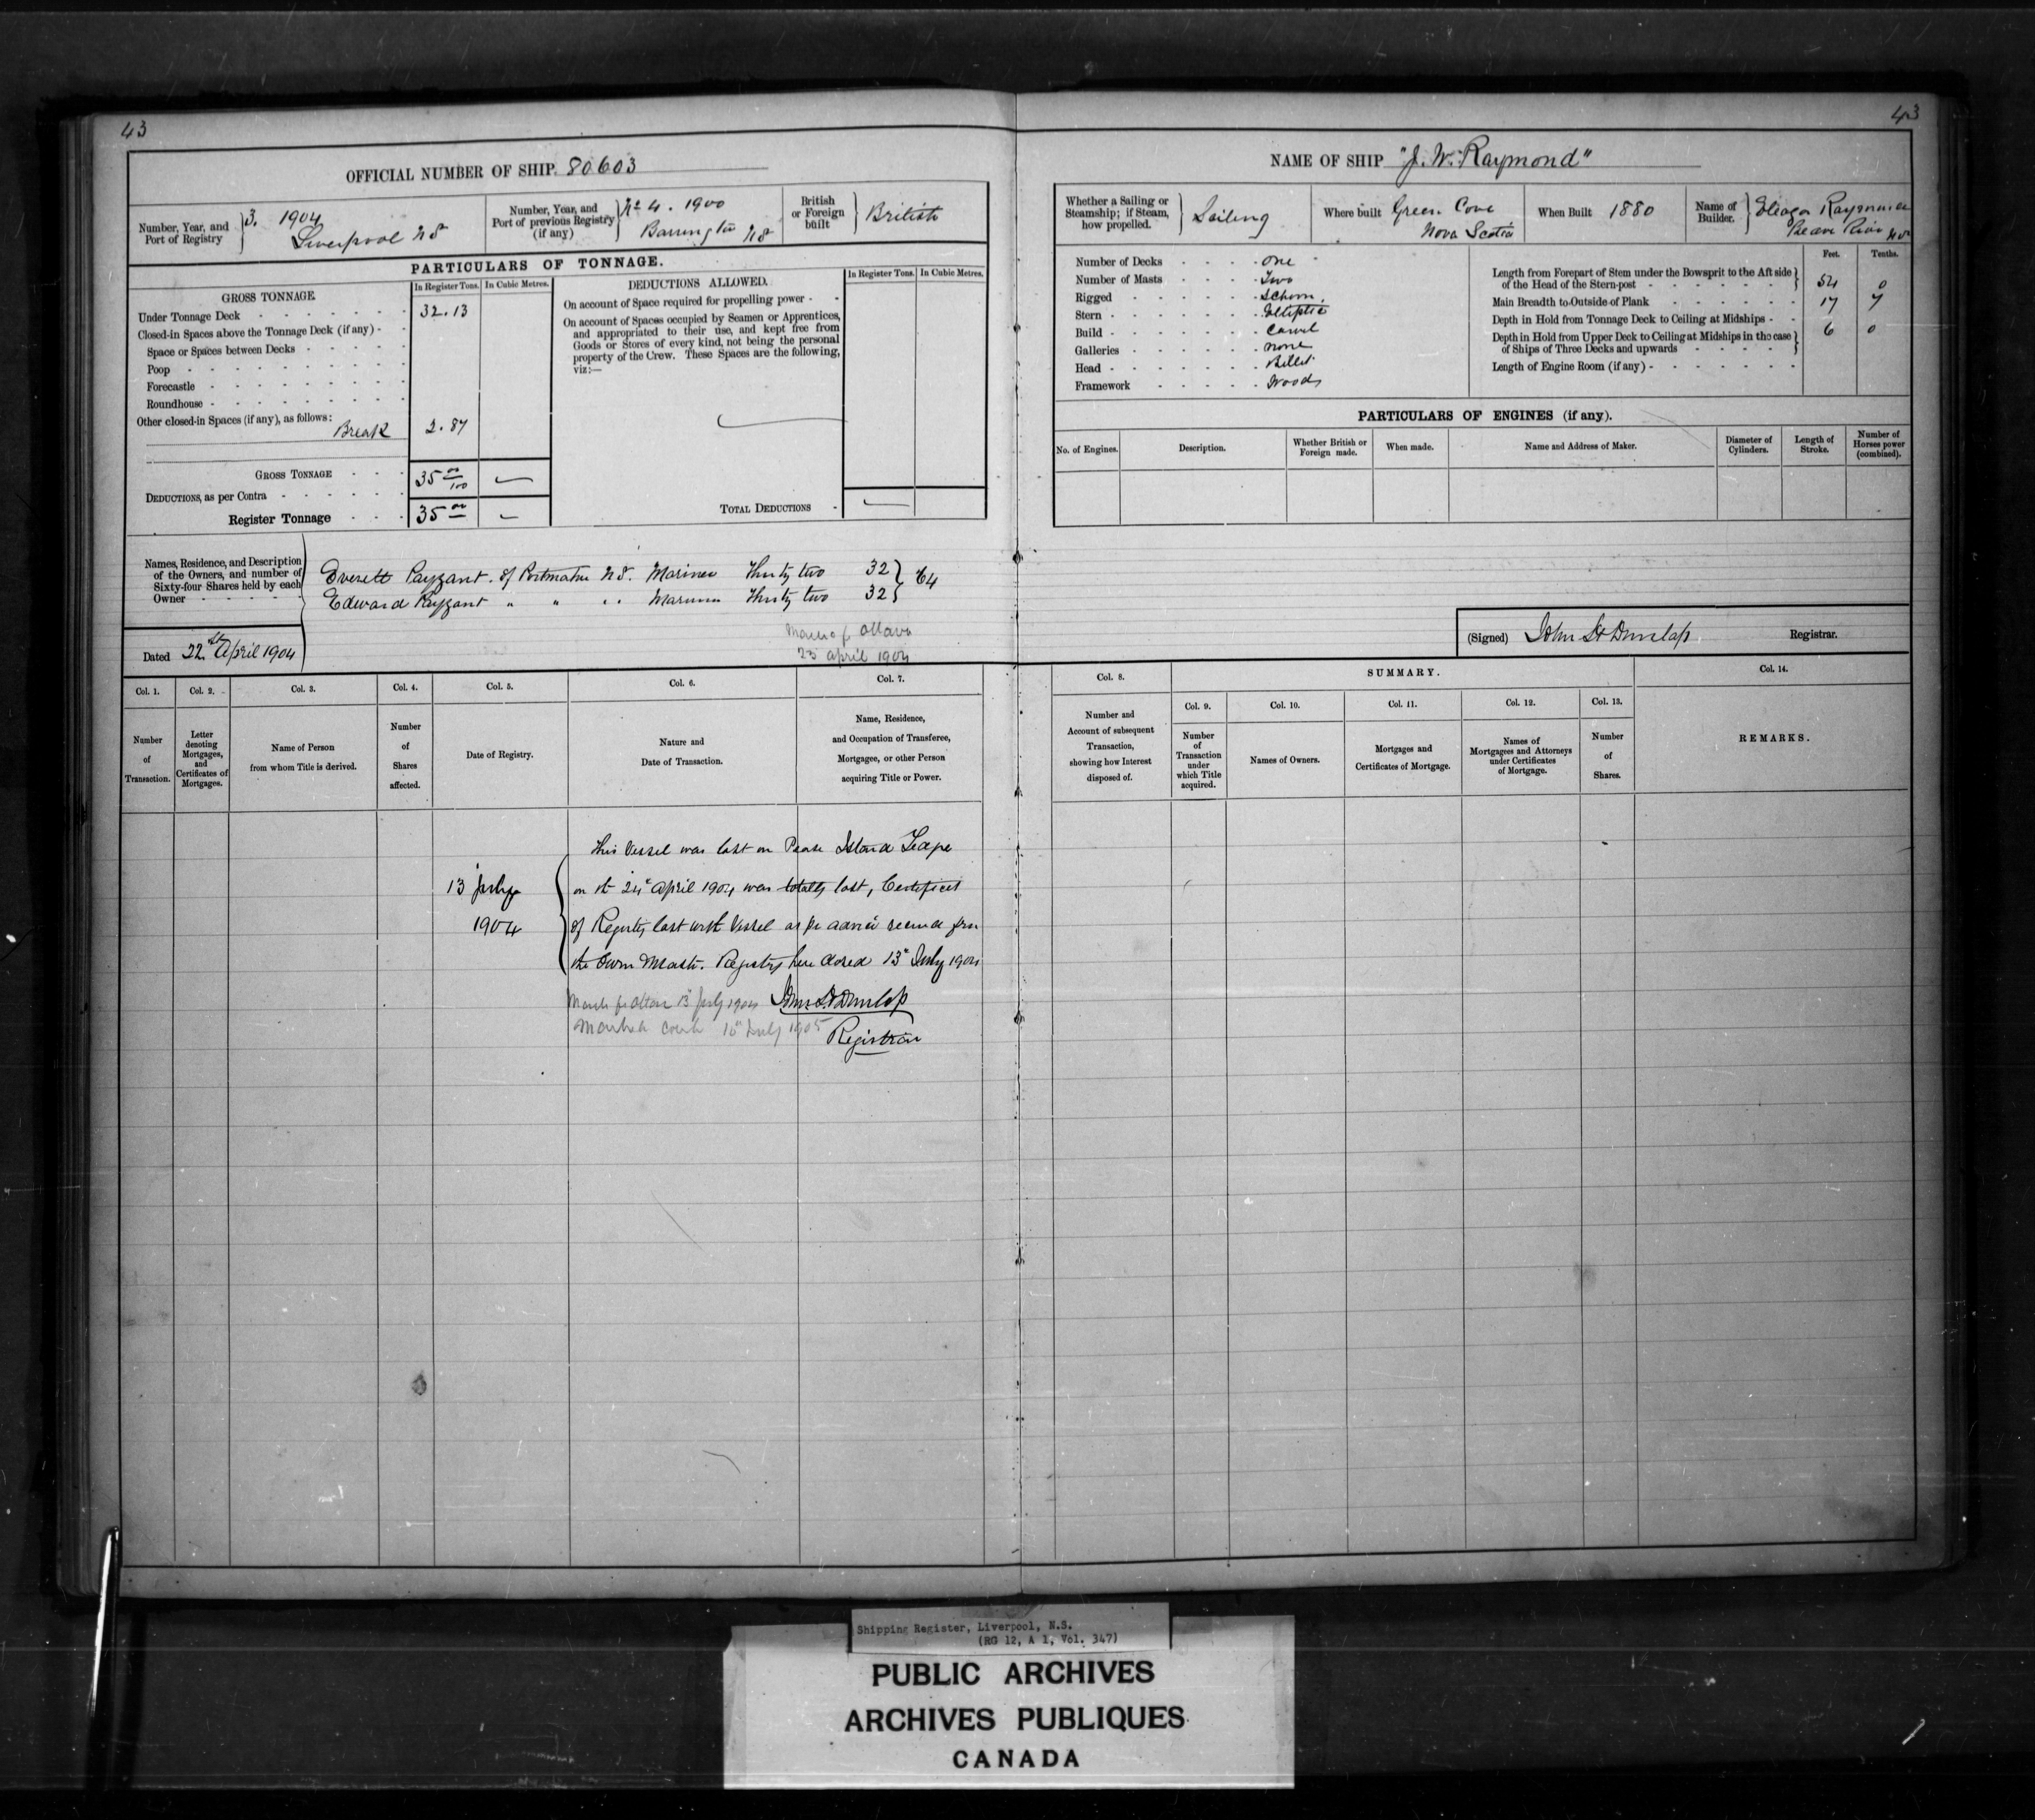 43
43
OFFICIAL NUMBER OF SHIP. 80603
Number, Year, and Port of Registry
3. 1904
Liverpool N S
Number, Year, and Port of previous Registry (if any)
No 4. 1900
Barrington N S
British or Foreign built
British
PARTICULARS OF TONNAGE.
GROSS TONNAGE.
In Register Tons.
In Cubic Metres.
Under Tonnage Deck 32.13
Closed-in Spaces above the Tonnage Deck (if any)
Space or Spaces between Decks
Poop
Forecastle
Roundhouse
Other closed-in Spaces (if any), as follows:
Break 2.87
GROSS TONNAGE 35 00/100
DEDUCTIONS, as per Contra
Register Tonnage 35 00
DEDUCTIONS ALLOWED.
In Register Tons.
In Cubic Metres.
On account of Space required for propelling power
On account of Spaces occupied by Seamen or Apprentices,
and appropriated to their use, and kept free from
Goods or Stores of every kind, not being the personal
property of the Crew. These Spaces are the following,
viz:—
TOTAL DEDUCTIONS
NAME OF SHIP "J. W. Raymond"
Whether a Sailing or Steamship; if Steam, how propelled.
Sailing
Where built Green Cove
Nova Scotia
When Built 1880
Name of Builder.
Raymond
River N S
Number of Decks One
Number of Masts Two
Rigged Schoon.
Stern Elliptic
Build Carvel
Galleries None
Head Billet
Framework Wood
Feet. Tenths.
Length from Forepart of Stem under the Bowsprit to the Aft side
of the Head of the Stern-post 54 0
Main Breadth to Outside of Plank 17 7
Depth in Hold from Tonnage Deck to Ceiling at Midships 6 0
Depth in Hold from Upper Deck to Ceiling at Midships in the case
of Ships of Three Decks and upwards
Length of Engine Room (if any)
PARTICULARS OF ENGINES (if any).
No. of Engines.
Description.
Whether British or Foreign made.
When made.
Name and Address of Maker.
Diameter of Cylinders.
Length of Stroke.
Number of Horses power (combined).
Names, Residence, and Description
of the Owners, and number of
Sixty-four Shares held by each
Owner
Everett Payzant of N S. Mariner Thirty two 32
Edward Payzant " " " Mariner Thirty two 32
64
Ottawa
23 April 1904
Dated 22nd April 1904
(Signed) John Dunlap Registrar.
Col. 1.
Number of Transaction.
Col. 2.
Letter denoting Mortgages, and Certificates of Mortgages.
Col. 3.
Name of Person from whom Title is derived.
Col. 4.
Number of Shares affected.
Col. 5.
Date of Registry.
Col. 6.
Nature and Date of Transaction.
Col. 7.
Name, Residence, and Occupation of Transferee, Mortgagee, or other Person acquiring Title or Power.
Col. 8.
Number and Account of subsequent Transaction, showing how Interest disposed of.
SUMMARY.
Col. 9.
Number of Transaction under which Title acquired.
Col. 10.
Names of Owners.
Col. 11.
Mortgages and Certificates of Mortgage.
Col. 12.
Names of Mortgagees and Attorneys under Certificates of Mortgage.
Col. 13.
Number of Shares.
Col. 14.
REMARKS.
This Vessel was lost on Island
13 July on 24 April 1904 was totally lost, Certificate
1904 of Registry lost with Vessel as per advice received from
the Owner Master. Registry here closed 13th July 1904
13 July 1904 Dunlap
July 1905
Registrar
Shipping Register, Liverpool, N.S.
(RG 12, A 1, Vol. 347)
PUBLIC ARCHIVES
ARCHIVES PUBLIQUES
CANADA